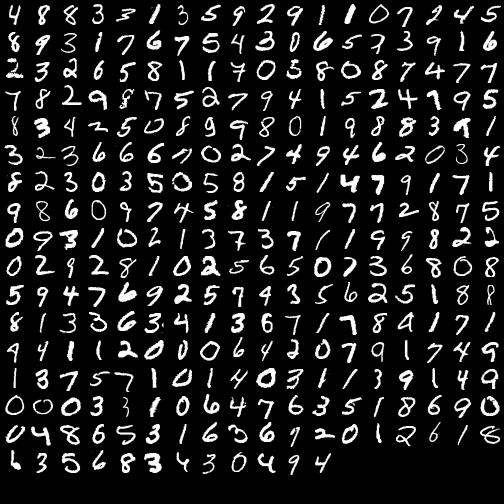 4 8 8 3 3 1 3 5 9 2 9 1 1 0 7 2 4 5
8 9 3 1 7 6 7 5 4 3 0 6 5 7 3 9 1 6
2 3 2 6 5 8 1 1 7 0 3 8 0 8 7 4 7 7
7 8 2 9 8 7 5 2 7 9 4 1 5 2 4 9 9 5
8 3 4 2 5 0 8 9 9 8 0 1 9 8 8 3 9 1
3 2 3 6 6 6 7 0 2 7 4 9 4 6 2 0 3 4
8 2 3 0 3 5 0 5 8 1 5 1 4 7 9 1 7 1
9 8 6 0 9 7 4 5 8 1 1 9 7 7 2 8 7 5
0 9 3 1 0 2 1 3 7 3 7 1 1 9 9 8 2 2
0 2 9 2 8 1 0 2 5 6 5 0 7 3 6 8 0 8
5 9 4 7 6 9 2 5 7 4 3 5 6 2 5 1 8 8
8 1 3 3 6 3 4 1 3 6 7 1 7 8 4 1 7 1
9 4 1 1 2 0 0 0 6 4 2 0 7 9 1 7 4 9
1 8 7 5 7 1 0 1 4 0 3 1 1 3 9 1 4 9
0 0 0 3 3 1 0 6 4 7 6 3 5 1 8 6 9 0
0 4 8 6 5 3 1 6 3 6 9 2 0 1 2 6 1 8
6 3 5 6 8 3 4 3 0 4 9 4